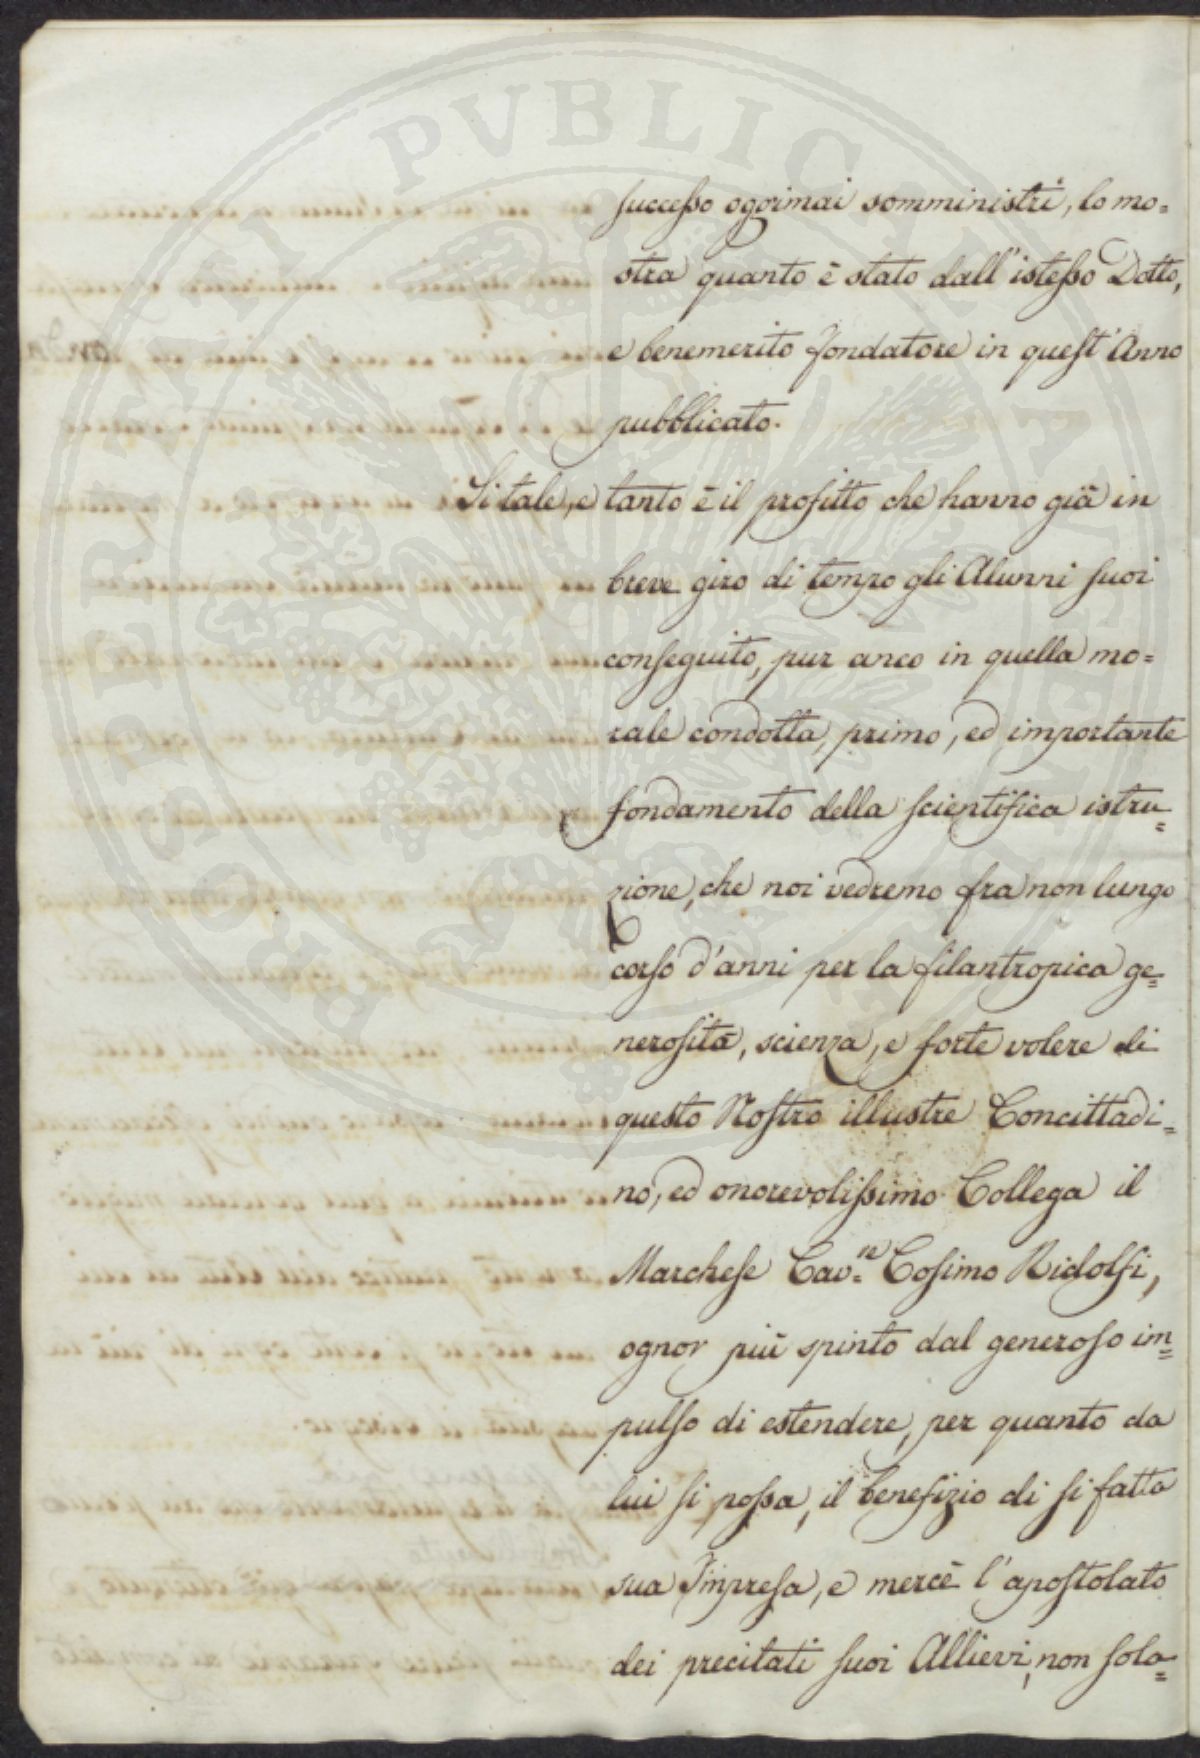 PROSPERITATI PVBLICAE AVGENDAE
successo oggimai somministri, lo mo=
stra quanto è stato dall'istesso Dotto,
e benemerito fondatore in quest'Anno
pubblicato.
Si tale, e tanto è il profitto che hanno già in
breve giro di tempo gli Alunni suoi
conseguito, pur anco in quella mo=
rale condotta, primo, ed importante
fondamento della scientifica istru=
zione, che noi vedremo fra non lungo
corso d'anni per la filantropica ge=
nerosità, scienza, e forte volere di
questo Nostro illustre Concittadi=
no, ed onorevolissimo Collega il
Marchese Cav.re Cosimo Ridolfi,
ognor più spinto dal generoso im=
pulso di estendere, per quanto da
lui si possa, il benefizio di si fatta
sua Impresa, e mercè l'apostolato
dei precitati suoi Allievi, non sola=